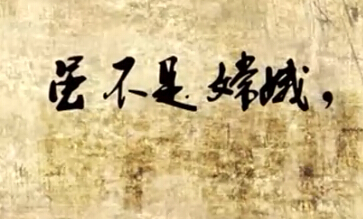 虽不是嫦娥，